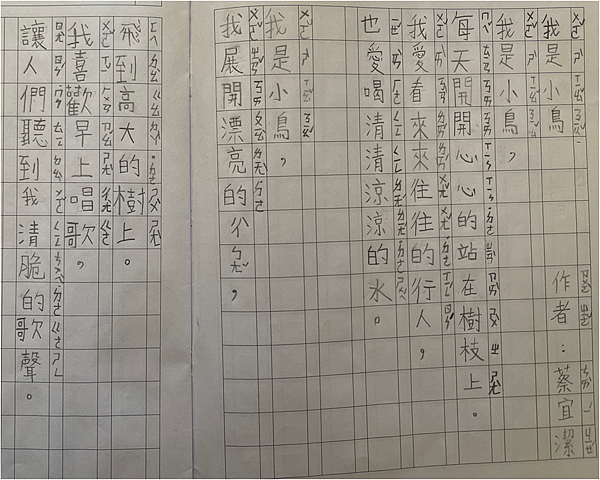 我是小鳥
作者:蔡宜潔
我是小鳥,
每天開開心心的站在樹枝上。
我愛看來來往往的行人,
也愛喝清清涼涼的水。
我是小鳥,
我展開漂亮的ㄔˋㄅㄤˇ,
飛到高大的樹上。
我喜歡早上唱歌,
讓人們聽到我清脆的歌聲。